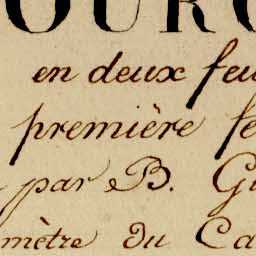 OURG
en deux feu
première fe
par B. G
mètre du Ca